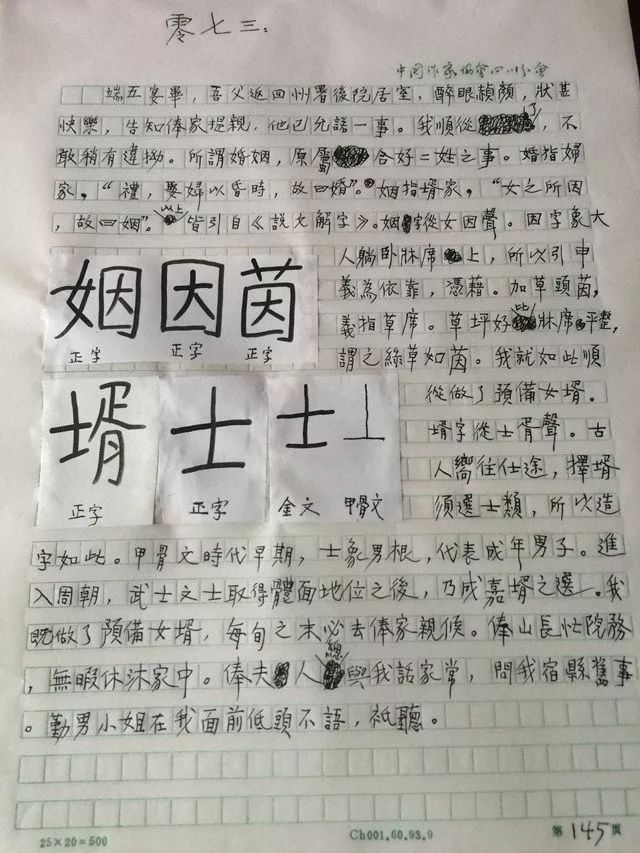 零七三.
中国作家协会四川分会
端五宴畢，吾父返四州署後院居室，醉眼赬顏，狀甚
快樂，告知俸家提親，他已允諾一事。我順從了，不
敢稍有違拗。所謂婚姻，原屬合好二姓之事。婚指婦
家，“禮，娶婦以昏時，故曰婚”。姻指壻家，“女之所因
，故曰姻”。以上皆引自《説文解字》。姻字從女因聲。因字象大
人躺卧牀席上，所以引申
義為依靠，憑藉。加草頭茵，
義指草席。草坪好比牀席平整，
謂之綠草如茵。我就如此順
從做了預備女壻。
壻字從士胥聲。古
人嚮往仕途，擇壻
須選士類，所以造
姻 因 茵
正字 正字 正字
壻 士 士 丄
正字 正字 金文 甲骨文
字如此。甲骨文時代早期，士象男根，代表成年男子。進
入周朝，武士文士取得體面地位之後，乃成嘉壻之選。我
既做了預備女壻，每旬之末必去俸家親候。俸山長忙院務
，無暇休沐家中。俸夫人總與我話家常，問我宿縣舊事
。勤男小姐在我面前低頭不語，祇聽。
25×20=500
Ch001.60.93.9
第145頁